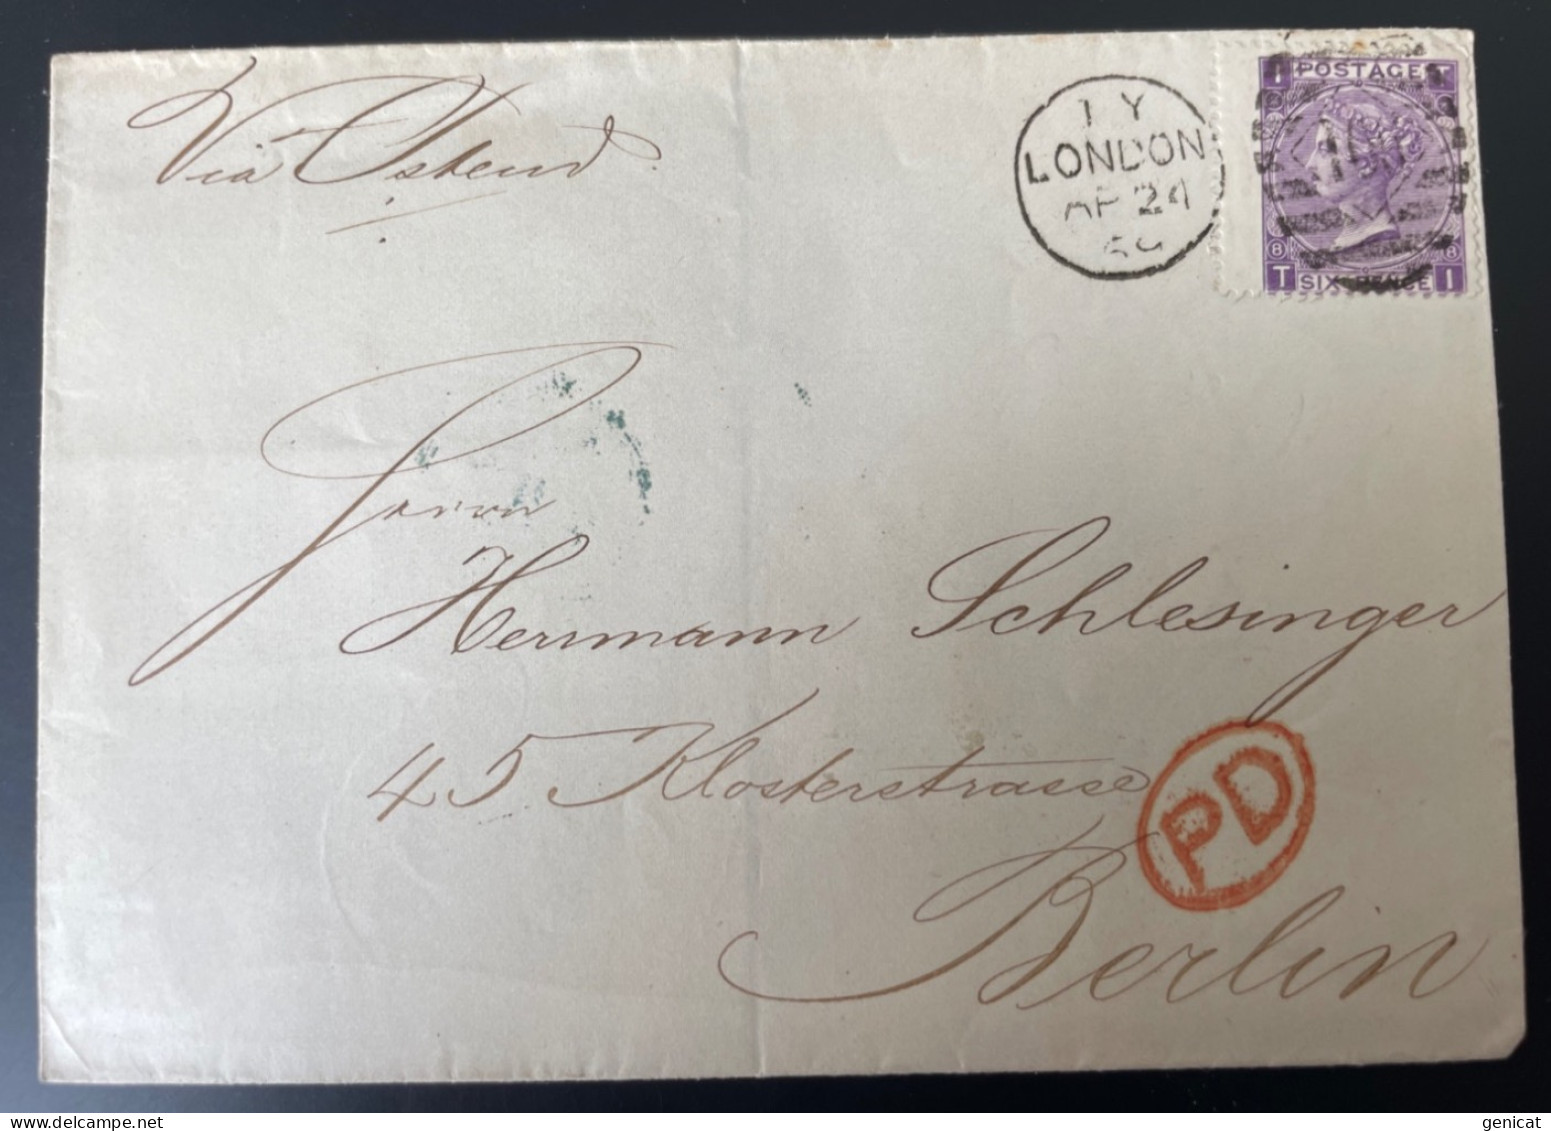 Via Ostend
1 Y
LONDON
AP 24
I POSTAGE T
8 8
T SIX PENCE I
Herrn
Herrmann Schlesinger
45 Klosterstrasse
PD
Berlin
genicat